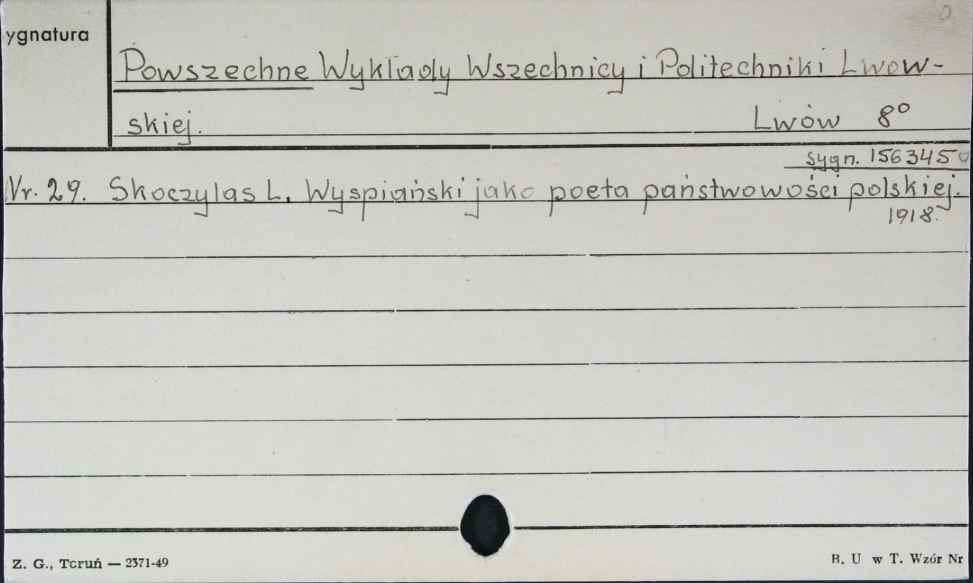 ygnatura
Powszechne Wykłady Wszechnicy i Politechniki Lwow-
skiej. Lwów 8°
sygn. 156345
Nr. 29. Skoczylas L. Wyspiański jako poeta państwowości polskiej.
1918.
Z. G., Toruń — 2371-49
B. U w T. Wzór Nr